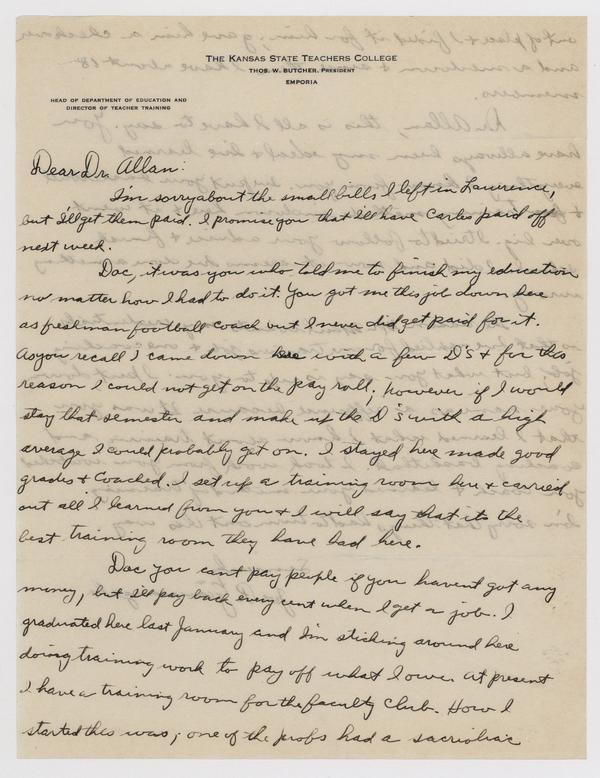 THE KANSAS STATE TEACHERS COLLEGE
THOS. W. BUTCHER, PRESIDENT
EMPORIA
HEAD OF DEPARTMENT OF EDUCATION AND
DIRECTOR OF TEACHER TRAINING
Dear Dr. Allan:
I'm sorry about the small bills I left in Lawrence,
but I'll get them paid. I promise you that I'll have Carles paid off
next week.
Doc, it was you who told me to finish my education
no matter how I had to do it. You got me this job down here
as freshman football coach but I never did get paid for it.
As you recall I came down here with a few D's & for this
reason I could not get on the pay roll; however if I would
stay that semester and make up the D's with a high
average I could probably get on. I stayed here made good
grades & coached. I set up a training room here & carried
out all I learned from you & I will say that its the
best training room they have had here.
Doc you cant pay people if you havent got any
money, but I'll pay back every cent when I get a job. I
graduated here last January and I'm sticking around here
doing training work to pay off what I owe. At present
I have a training room for the faculty Club. How I
started this was; one of the profs had a sacroiliac